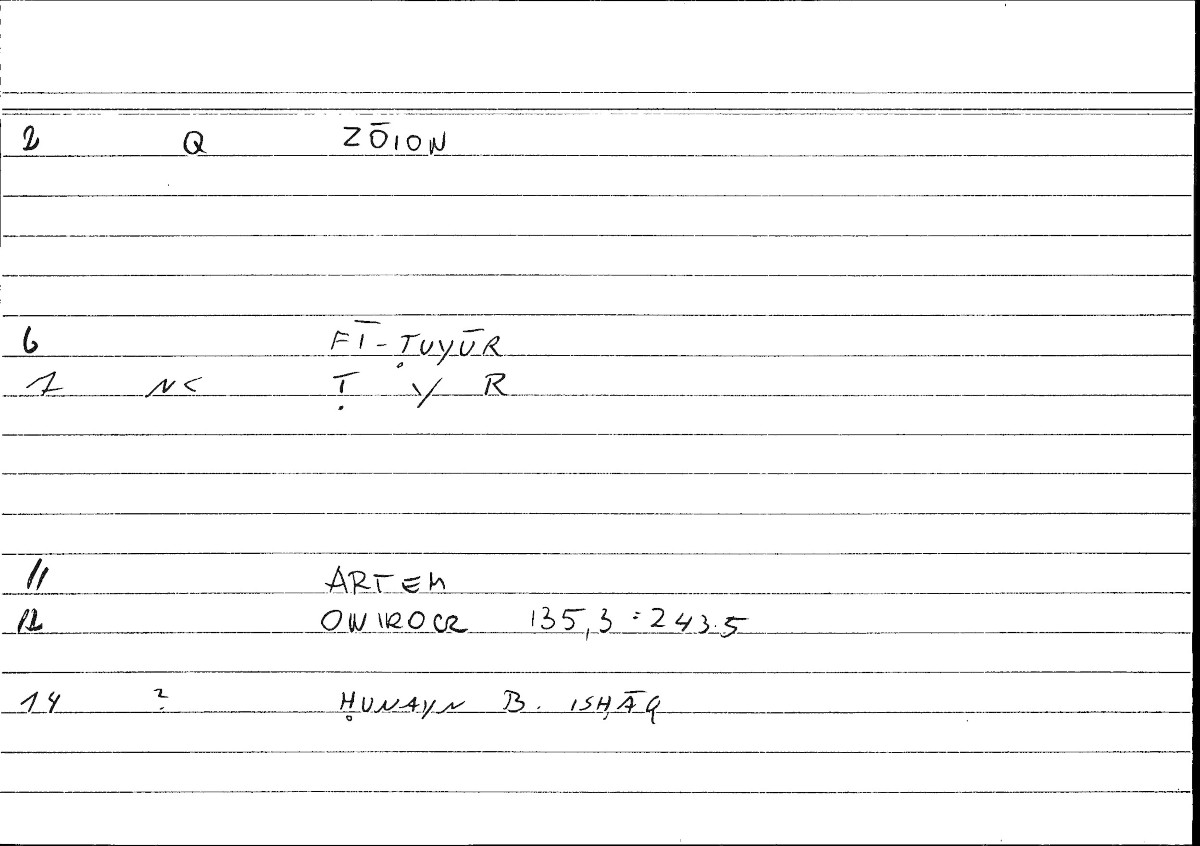 2 Q ZŌION
6 FĪ-ṬUYŪR
7 NC Ṭ Y R
11 ARTEM
12 ONIROCR 135,3 = 243.5
14 ? ḤUNAYN B. ISḤĀQ